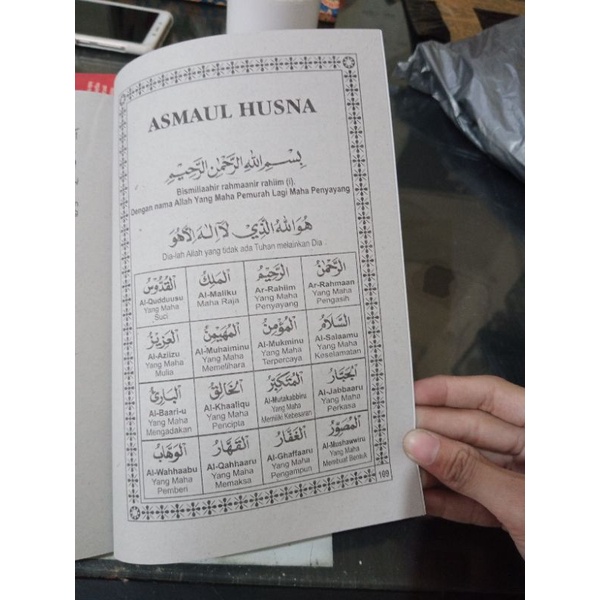 ASMAUL HUSNA
بِسْمِ اللهِ الرَّحْمٰنِ الرَّحِيْمِ
Bismillaahir rahmaanir rahiim (i).
Dengan nama Allah Yang Maha Pemurah Lagi Maha Penyayang
هُوَ اللهُ الَّذِيْ لَآ اِلٰهَ اِلَّا هُوَ
Dia-lah Allah yang tidak ada Tuhan melainkan Dia
الرَّحْمٰنُ
Ar-Rahmaan
Yang Maha
Pengasih
الرَّحِيْمُ
Ar-Rahiim
Yang Maha
Penyayang
الْمَلِكُ
Al-Maliku
Maha Raja
الْقُدُّوْسُ
Al-Qudduusu
Yang Maha
Suci
السَّلَامُ
Al-Salaamu
Yang Maha
Keselamatan
الْمُؤْمِنُ
Al-Mukminu
Yang Maha
Terpercaya
الْمُهَيْمِنُ
Al-Muhaiminu
Yang Maha
Memelihara
الْعَزِيْزُ
Al-Aziizu
Yang Maha
Mulia
الْجَبَّارُ
Al-Jabbaaru
Yang Maha
Perkasa
الْمُتَكَبِّرُ
Al-Mutakabbiru
Yang Maha
Memiliki Kebesaran
الْخَالِقُ
Al-Khaaliqu
Yang Maha
Pencipta
الْبَارِئُ
Al-Baari-u
Yang Maha
Mengadakan
الْمُصَوِّرُ
Al-Mushawwiru
Yang Maha
Membuat Bentuk
الْغَفَّارُ
Al-Ghaffaaru
Yang Maha
Pengampun
الْقَهَّارُ
Al-Qahhaaru
Yang Maha
Memaksa
الْوَهَّابُ
Al-Wahhaabu
Yang Maha
Pemberi
109